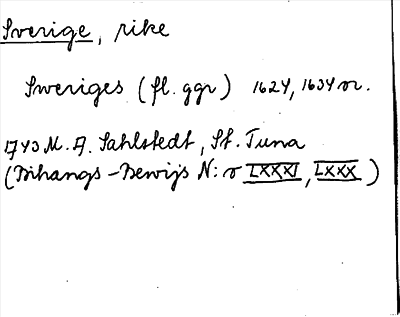 Sverige, rike
Sweriges (fl. ggr) 1624, 1634 or.
1743 M. A. Sahlstedt, St. Tuna
(Bihangs-Bewijs N:r LXXXI, LXXX)